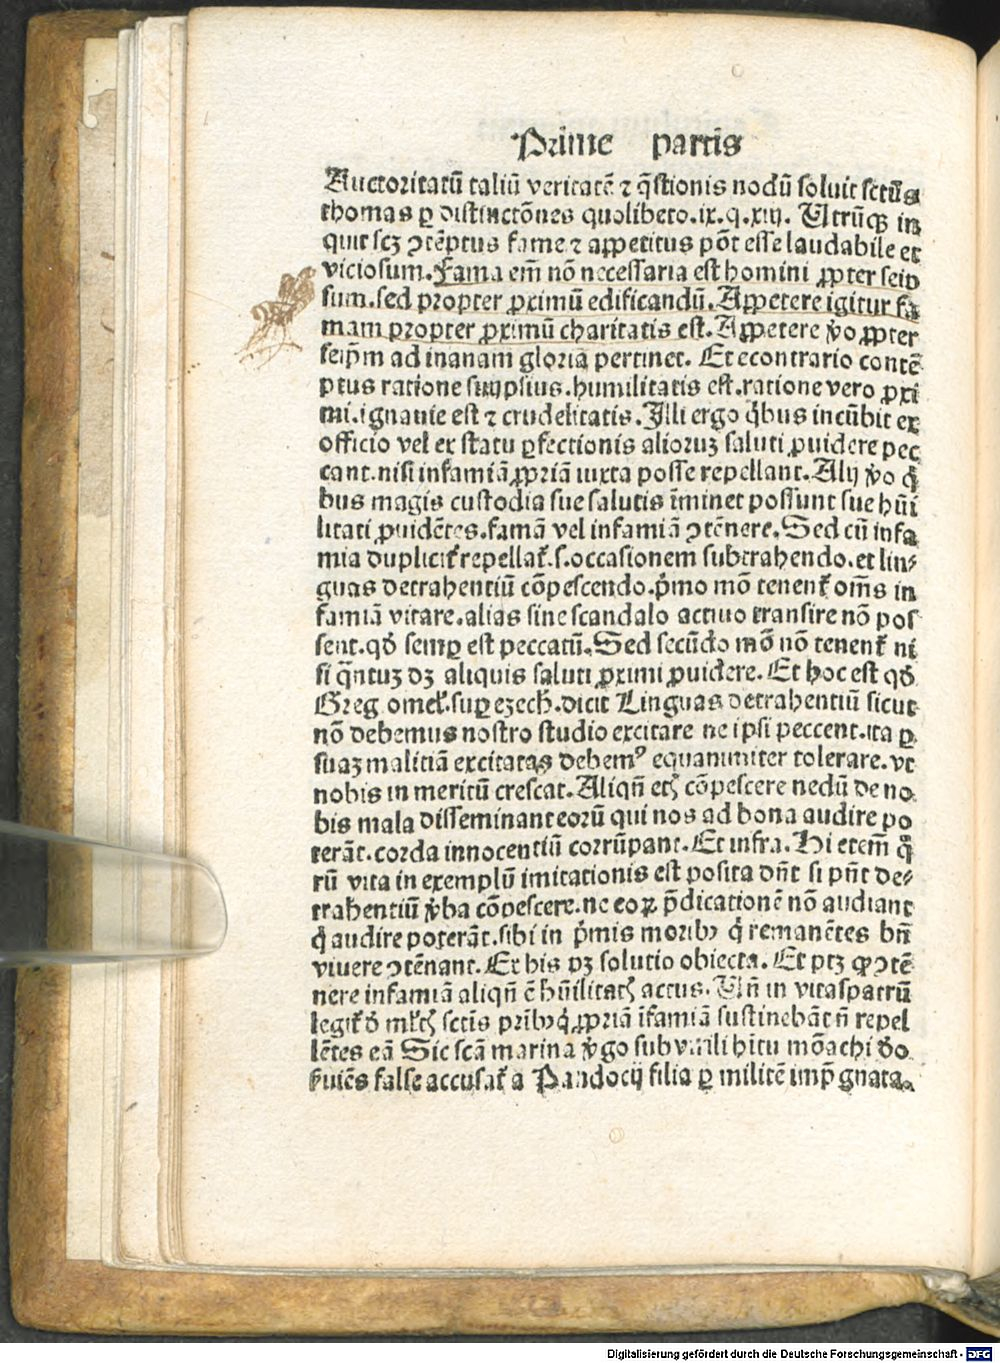 Prime partis
Auctoritatū taliū veritatē ⁊ q̄stionis nodū soluit sctūs
thomas ꝑ distinctōnes quolibeto.ix.q.xiij. Utrūqꝫ in
quit scꝫ ↄtēptus fame ⁊ appetitus pōt esse laudabile et
viciosum.Fama em̄ nō necessaria est homini ꝓpter seip
sum.sed propter ꝓximū edificandū.Appetere igitur fa
mam propter ꝓximū charitatis est.Appetere v̓o ꝓpter
seip̄m ad inanam gloriā pertinet. Et econtrario contē
ptus ratione suiipsius.humilitatis est.ratione vero ꝓxi
mi.ignauie est ⁊ crudelitatis.Illi ergo q̓bus incūbit ex
officio vel ex statu ꝑfectionis alioruꝫ saluti ꝓuidere pec
cant.nisi infamiā ꝓpriā iuxta posse repellant.Alij v̓o q̓
bus magis custodia sue salutis īminet possunt sue hūi
litati ꝓuidētes.famā vel infamiā ↄtēnere.Sed cū infa
mia duplicit̓ repellat̓.s.occasionem subtrahendo.et lin⸗
guas detrahentiū cōpescendo.p̓mo mō tenent̓ om̄s in
famiā vitare.alias sine scandalo actiuo transire nō pos
sent.qđ semꝑ est peccatū.Sed secūdo mō nō tenent̓ ni
si q̄ntuꝫ dꝫ aliquis saluti ꝓximi ꝓuidere. Et hoc est qđ
Greg omel̓.suꝑ ezech̓.dicit Linguas detrahentiū sicut
nō debemus nostro studio excitare ne ipsi peccent.ita ꝑ
suaꝫ malitiā excitatas debemꝰ equanimiter tolerare.vt
nobis in meritū crescat.Aliqn̄ etꝫ cōpescere nedū de no
bis mala disseminant eorū qui nos ad bona audire po
terāt.corda innocentiū corrūpant.Et infra.Hi etem̄ q̊
rū vita in exemplū imitationis est posita dn̄t si pn̄t de⸗
trahentiū v̓ba cōpescere.ne eoꝝ p̄dicationē nō audiant
q̓ audire poterāt.sibi in p̓mis moribꝫ q̓ remanētes bn̄
viuere ↄtēnant.Et his pꝫ solutio obiecta. Et ptꝫ ꝙ ↄtē
nere infamiā aliqn̄ ē hūilitatꝭ actus. Un̄ in vitaspatrū
legit̓ đ ml̓tꝭ sctīs pr̄ibꝫ q̓ ꝓpriā īfamiā sustinebāt n̄ repel
lētes eā Sic scā marina v̓go sub virili hitu mōachi đo
seruiēs false accusat̓ a Pandocij filia ꝑ militē imp̄gnata.
Digitalisierung gefördert durch die Deutsche Forschungsgemeinschaft - DFG